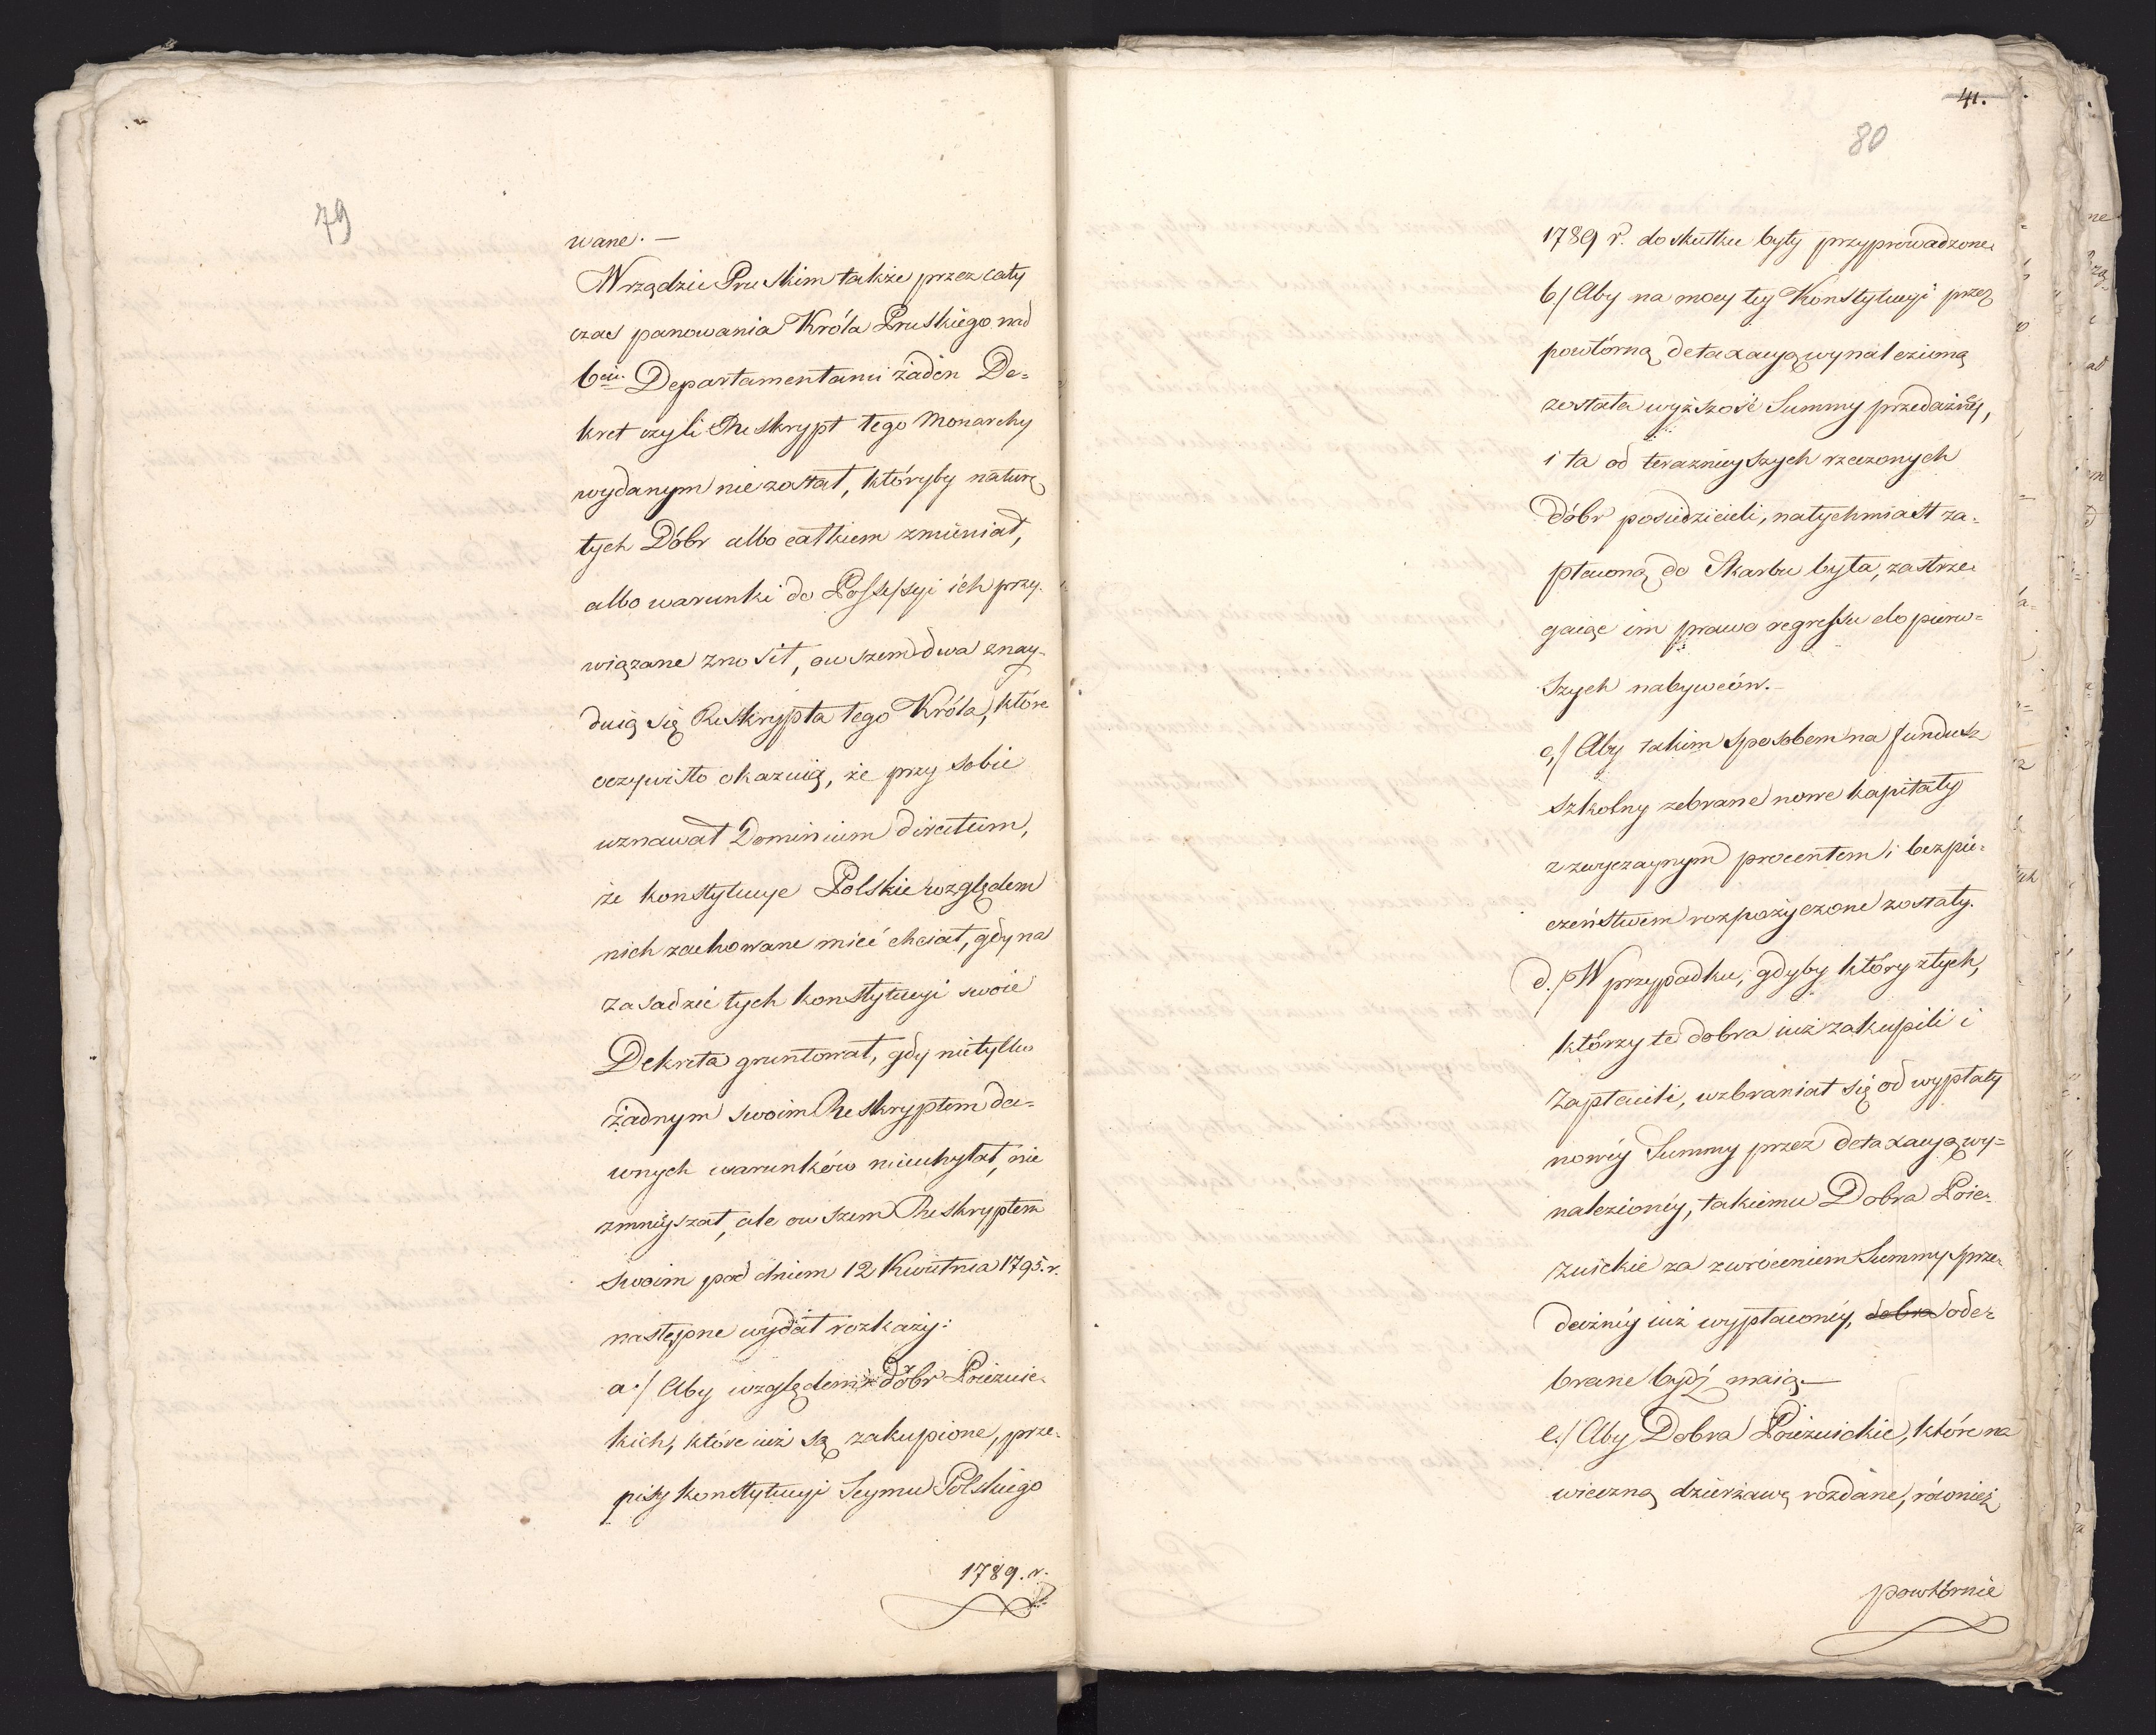 79
wane. —
W rządzie Pruskim także przez cały
czas panowania Króla Pruskiego nad
6ciu. Departamentami żaden De-
kret czyli Reskrypt tego Monarchy
wydanym nie został, któryby naturę
tych Dóbr albo całkiem zmieniał,
albo warunki do Possessyi ich przy-
wiązane znosił, owszem dwa znay-
duią się Reskrypta tego Króla, które
oczywisto okazuią, że przy sobie
uznawał Dominium directum,
że konstytucye Polskie względem
nich zachowane mieć chciał, gdy na
zasadzie tych konstytucyi swoie
Dekreta gruntował, gdy nietylko
żadnym swoim Reskryptem da-
wnych warunków nieuchylał, nie
zmnieyszał, ale owszem Reskryptem
swoim pod dniem 12 Kwietnia 1795. r.
następne wydał rozkazy:
a./ Aby względem Dóbr Poiezuic-
kich, które iuż są zakupione, prze-
pisy konstytucyi Seymu Polskiego
1789. r.
41.
80
1789 r. do skutku były przyprowadzone.
b/ Aby na mocy tey Konstytucyi przez
powtórną detaxacyą wynaleziona
została wyższość Summy przedażney,
i ta od teraznieyszych rzeczonych
Dóbr posiedzicieli, natychmiast za-
płacona do Skarbu była, zastrze-
gaiąc im prawo regressu do pierw-
szych nabywców. —
c./ Aby takim sposobem na fundusz
szkolny zebrane nowe kapitały
z zwyczaynym procentem i bezpie-
czeństwem rozpożyczone zostały.
d./ W przypadku, gdyby który z tych,
którzy te dobra iuż zakupili i
zapłacili, wzbraniał się od wypłaty
nowéy Summy przez detaxacyą wy-
nalezionéy, takiemu Dobra Poie-
zuickie za zwróceniem Summy sprze-
dażnéy iuż wypłaconéy, dobra ode-
brane bydź maią. —
e./ Aby Dobra Poiezuickie, które na
wieczną dzierżawę rozdane, również
powtórnie